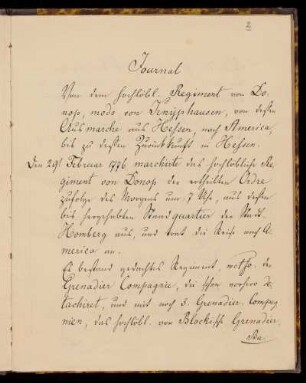 2
Journal
Von dem Hochlöbl. Regiment von Do-
nop, modo von Knyphausen, von dessen
Ausmarche aus Hessen, nach America,
bis zu dessen Zurückkunft in Hessen.
Den 29t Februar 1776 marchirte das hochlöbliche Re-
giment von Donop der ertheilten Ordre
zufolge des Morgens um 7 Uhr, aus dessen
bis hergehabten Standquartier der Stadt
Homberg aus, und trat die Reise nach A-
merica an.
Es bestand gedachtes Regiment, der
Grenadier Compagnie, die schon vorhero de-
tachiret, und mit noch 3. Grenadier Compag-
nien, das Hochlöbl. von Blockische Grenadier
Ba-